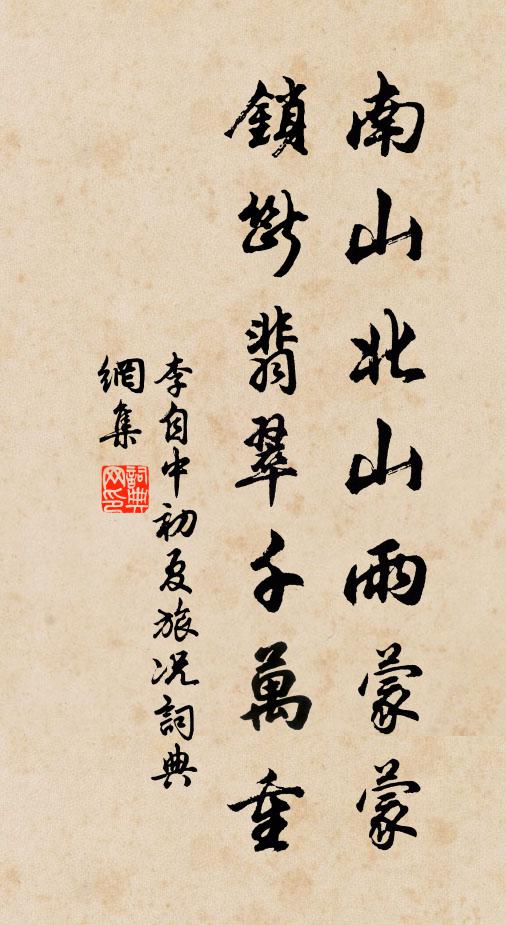 南山北山雨蒙蒙
鎖斷翡翠千萬重
李自中初夏旅況詞典
網集
詞典網印